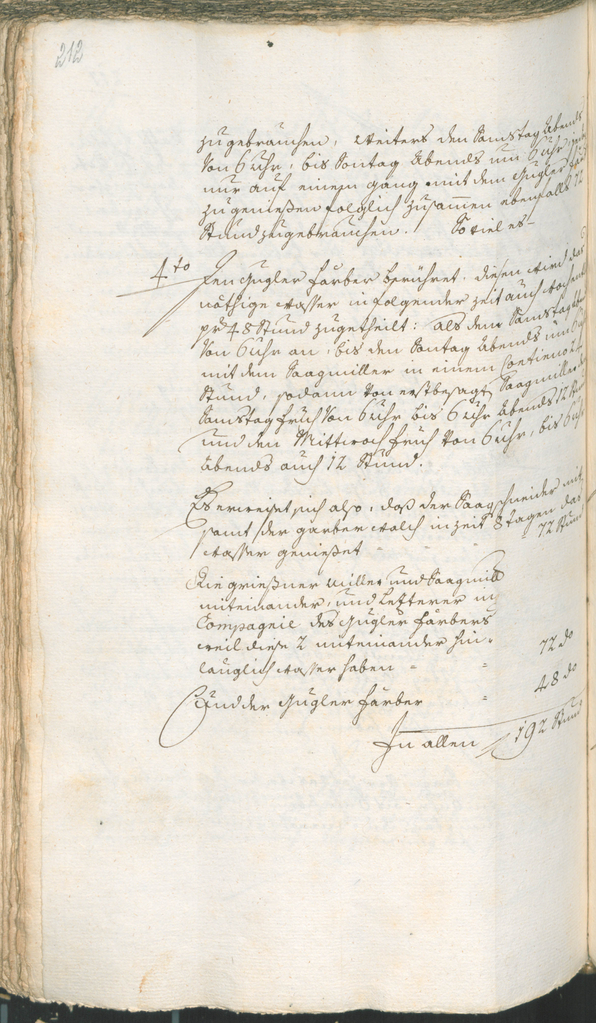 212
zugebrauchen, weiters den Samstag Abends
von 6 Uhr, bis Sontag Abends um 6 Uhr
nur auf einem gang mit dem Gugler
zugenießen folglich zusammen ebenfalls 72
Stund zugebrauchen. So viel es
4to den Gugler Färber berühret, diesen wird das
nöthige wasser in folgender zeit auch
pr 48 Stund zugetheilt: als dem Samstag
von 6 Uhr an, bis den Sontag Abends um 6
mit dem Saagmiller in einem Contieno 24
Stund, sodann von erstbesagt Saagmiller
Samstag fruh von 6 Uhr bis 6 Uhr Abends 12
und den Mittwoch fruh von 6 Uhr, bis 6 Uhr
Abends auch 12 Stund.
Es erweiset sich also, daß der Saagschneider mit
samt der garber walch in zeit 8 tagen das
wasser genießet - - - 72 Stund
Die grießner Miller und Saagmill
miteinander, und Letterer in
Compagnie des Gugler Färbers
weil diese 2 miteinander hin-
länglich wasser haben - - 72 do
Und der Gugler Färber - 48 do
In allen 192 Stund